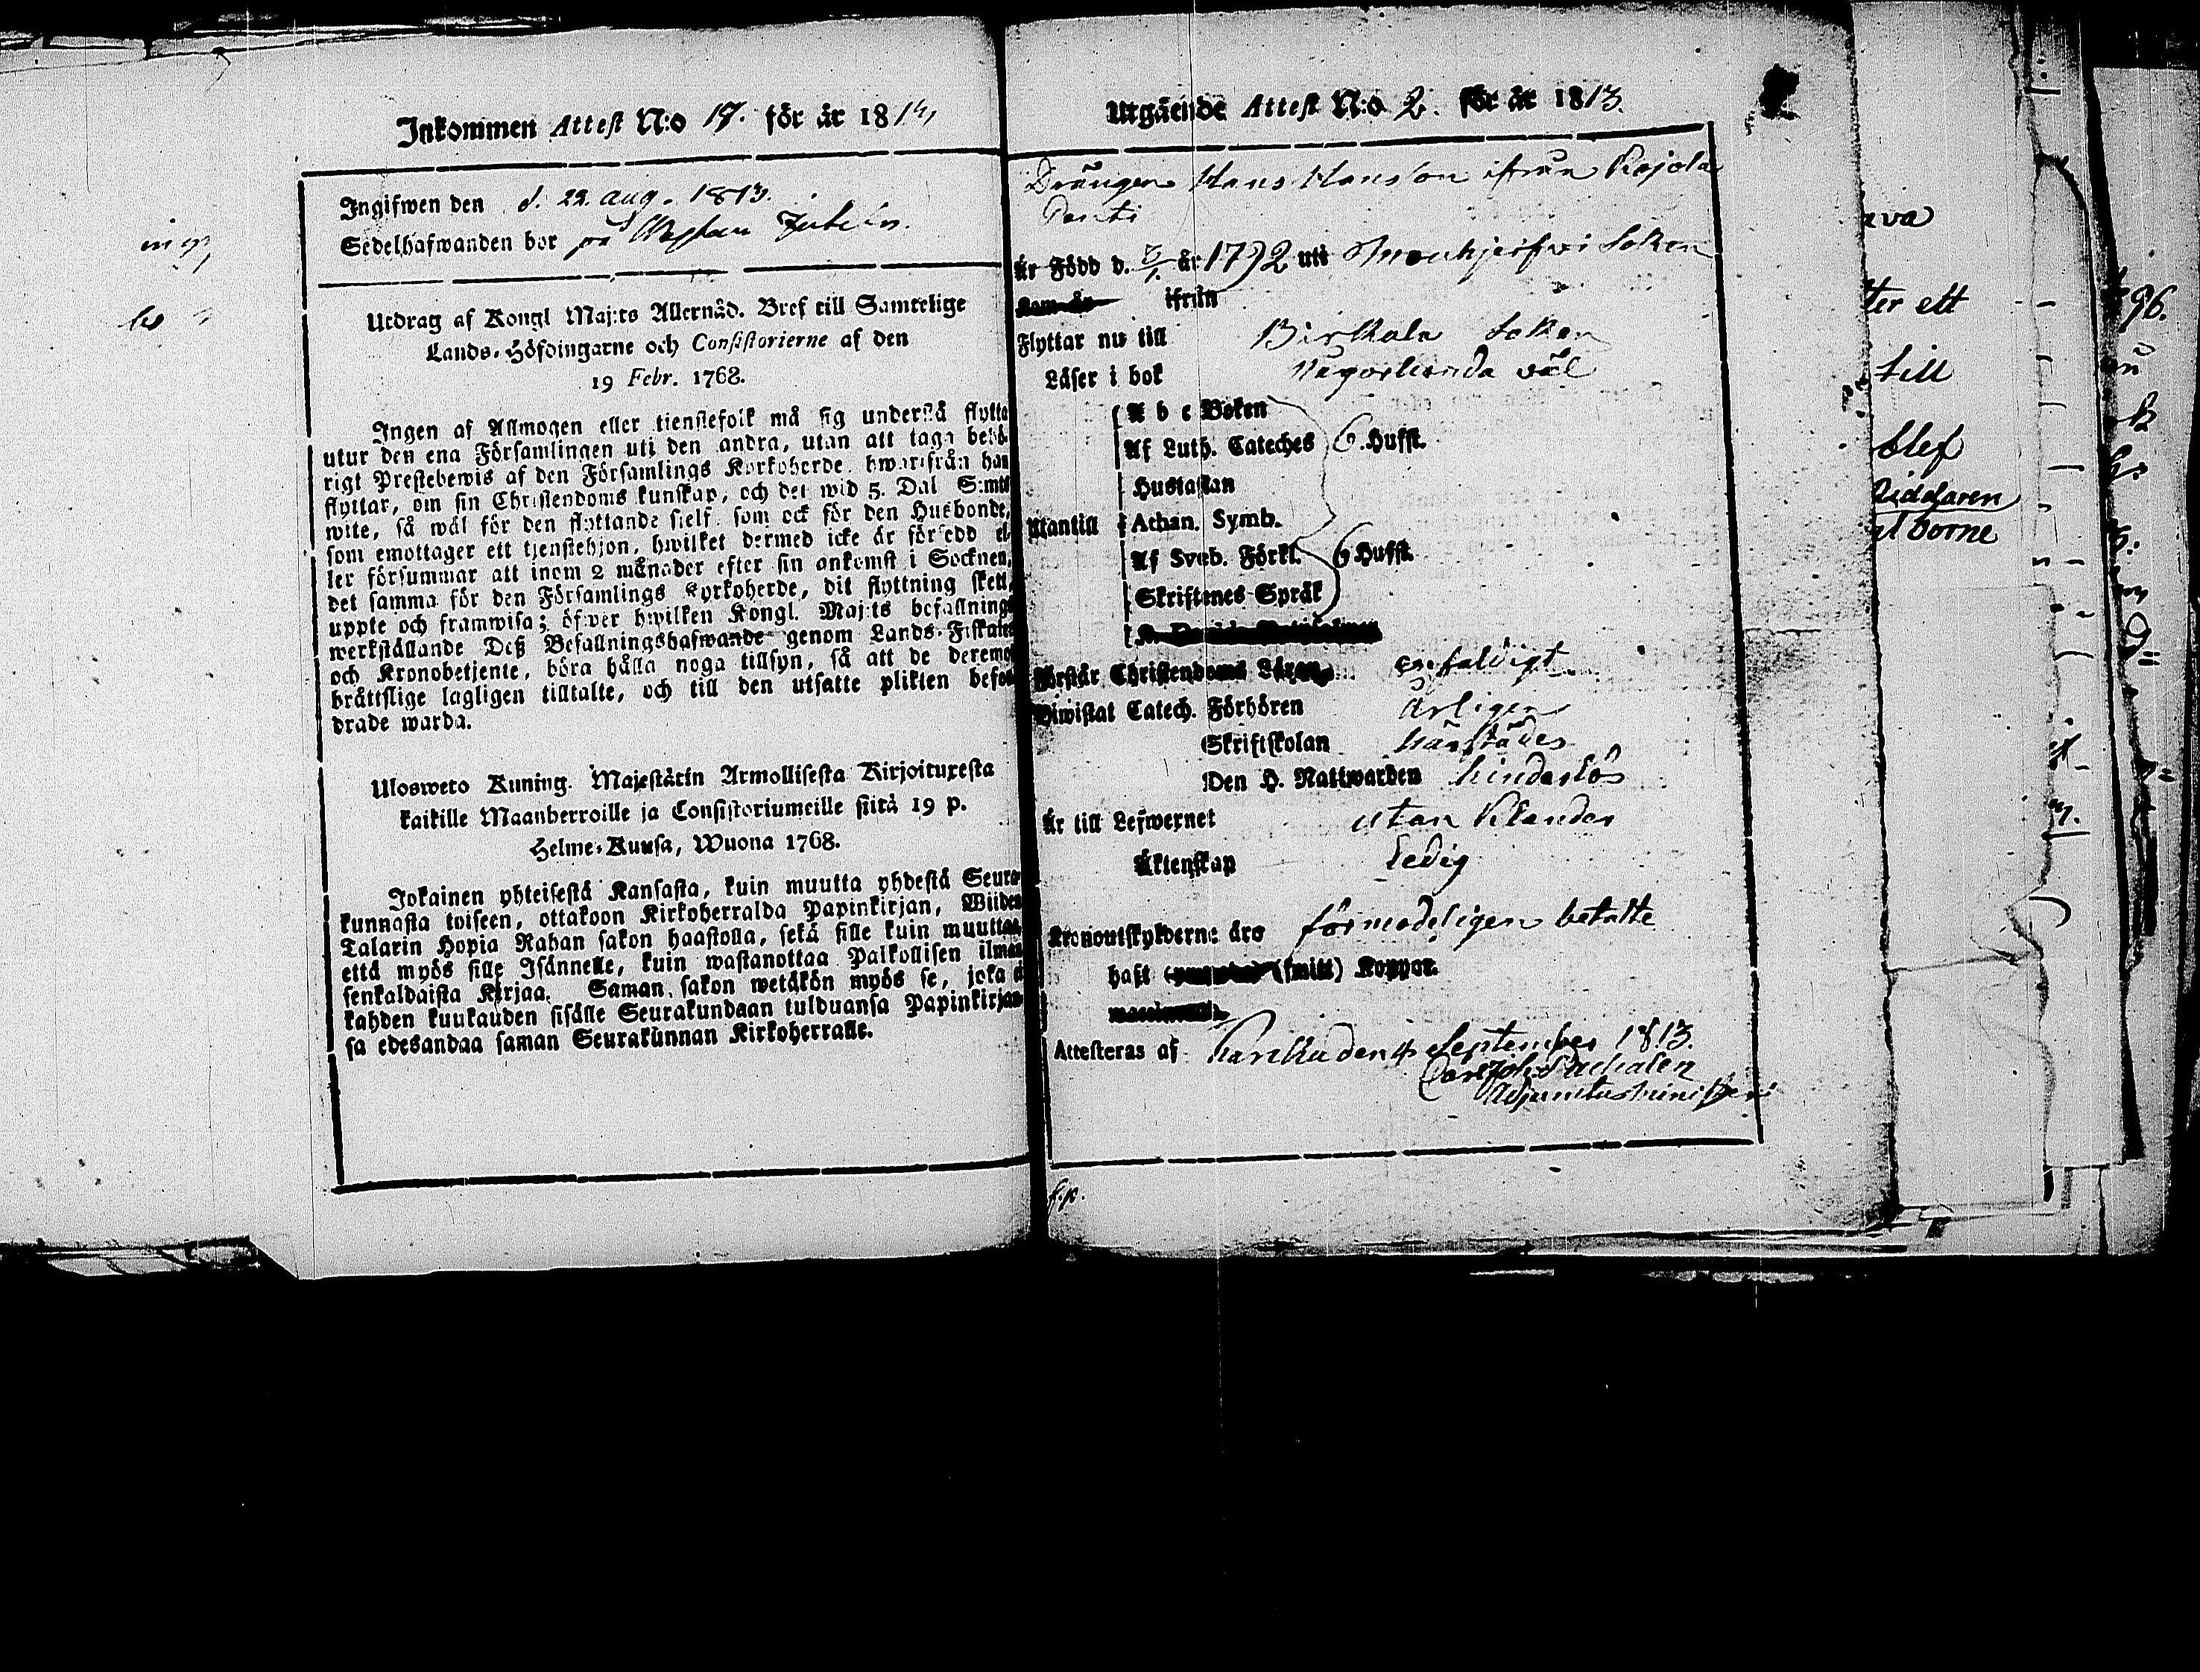 Inkommen Attest N:o 17. för år 181
Ingifwen den d. 22. aug. 1813.
Sedelhafwanden bor på
Utdrag af Kongl Maj:ts Allernåd. Bref till Samtelige
Lands-Höfdingarne och Consistorierne af den
19 Febr. 1768.
Ingen af Allmogen eller tienstefolk må sig understå flytta
utur den ena Församlingen uti den andra, utan att taga behö-
rigt Prestebewis af den Församlings Kyrkoherde, hwarifrån han
flyttar, om sin Christendoms kunskap, och det wid 5. Dal S:mts
wite, så wäl för den flyttande sielf, som ock för den Husbonde,
som emottager ett tjenstehjon, hwilket dermed icke är försedd el-
ler försummar att inom 2 månader efter sin ankomst i Socknen,
det samma för den Församlings Kyrkoherde, dit flyttning skett,
uppte och framwisa; öfwer hwilken Kongl. Maj:ts befallnings
werkställande Deß Befallningshafwande genom Lands-Fiskaler
och Kronobetjente, böra hålla noga tillsyn, så att de deremot
bråttslige lagligen tilltalte, och till den utsatte plikten befor-
drade warda.
Ulosweto Kuning. Majestätin Armollisesta Kirjoituxesta
kaikille Maanherroille ja Consistoriumeille siitä 19 p.
Helme-Kuusa, Wuona 1768.
Jokainen yhteisestä Kansasta, kuin muutta yhdestä Seura-
kunnasta toiseen, ottakoon Kirkoherralda Papinkirjan, Wiiden
Talarin Hopia Rahan sakon haastolla, sekä sille kuin muuttaa,
että myös sille Isännelle, kuin wastanottaa Palkollisen ilman
senkaldaista Kirjaa. Saman sakon wetäkön myös se, joka ei
kahden kuukauden sisälle Seurakundaan tulduansa Papinkirjan-
sa edesandaa saman Seurakunnan Kirkoherralle.
Utgående Attest N:o 2. för år 1813.
Drängen Hans Hansson ifrån Kojola
Är Född d. år 1792 uti Socken
ifrån
Flyttar nu till Birkala Socken
Läser i bok någorlunda väl
A b c Boken
Af Luth. Cateches 6. Hufst.
Hustaflan
Utantill Athan. Symb.
Af Sveb. Förkl. 6 Hufst.
Skriftenes Språk
Förstår Christendoms Läran enfaldigt
Biwistat Catech. Förhören Årligen
Skriftskolan härstädes
Den H. Nattwarden hinderlös
Är till Lefwernet utan Klander
Äktenskap Ledig
Kronoutskylderne äro förmodeligen betalte
haft (smitt) Koppor.
Attesteras af Karkku den 4 September 1813.
Adjunctus Ministerii
f.p.
ava
ter ett
till
blef
Riddaren
borne
96.